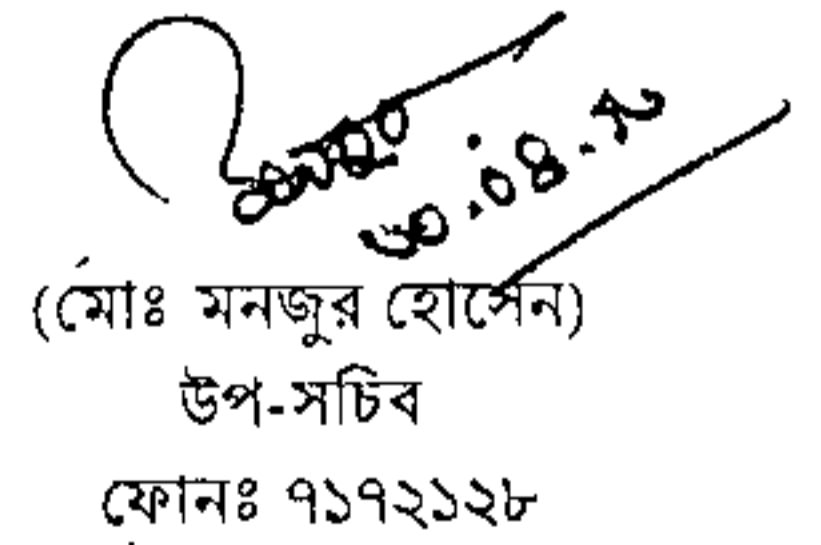 ৩০.০৪.২
(মোঃ মনজুর হোসেন)
উপ-সচিব
ফোনঃ ৭১৭২১২৮